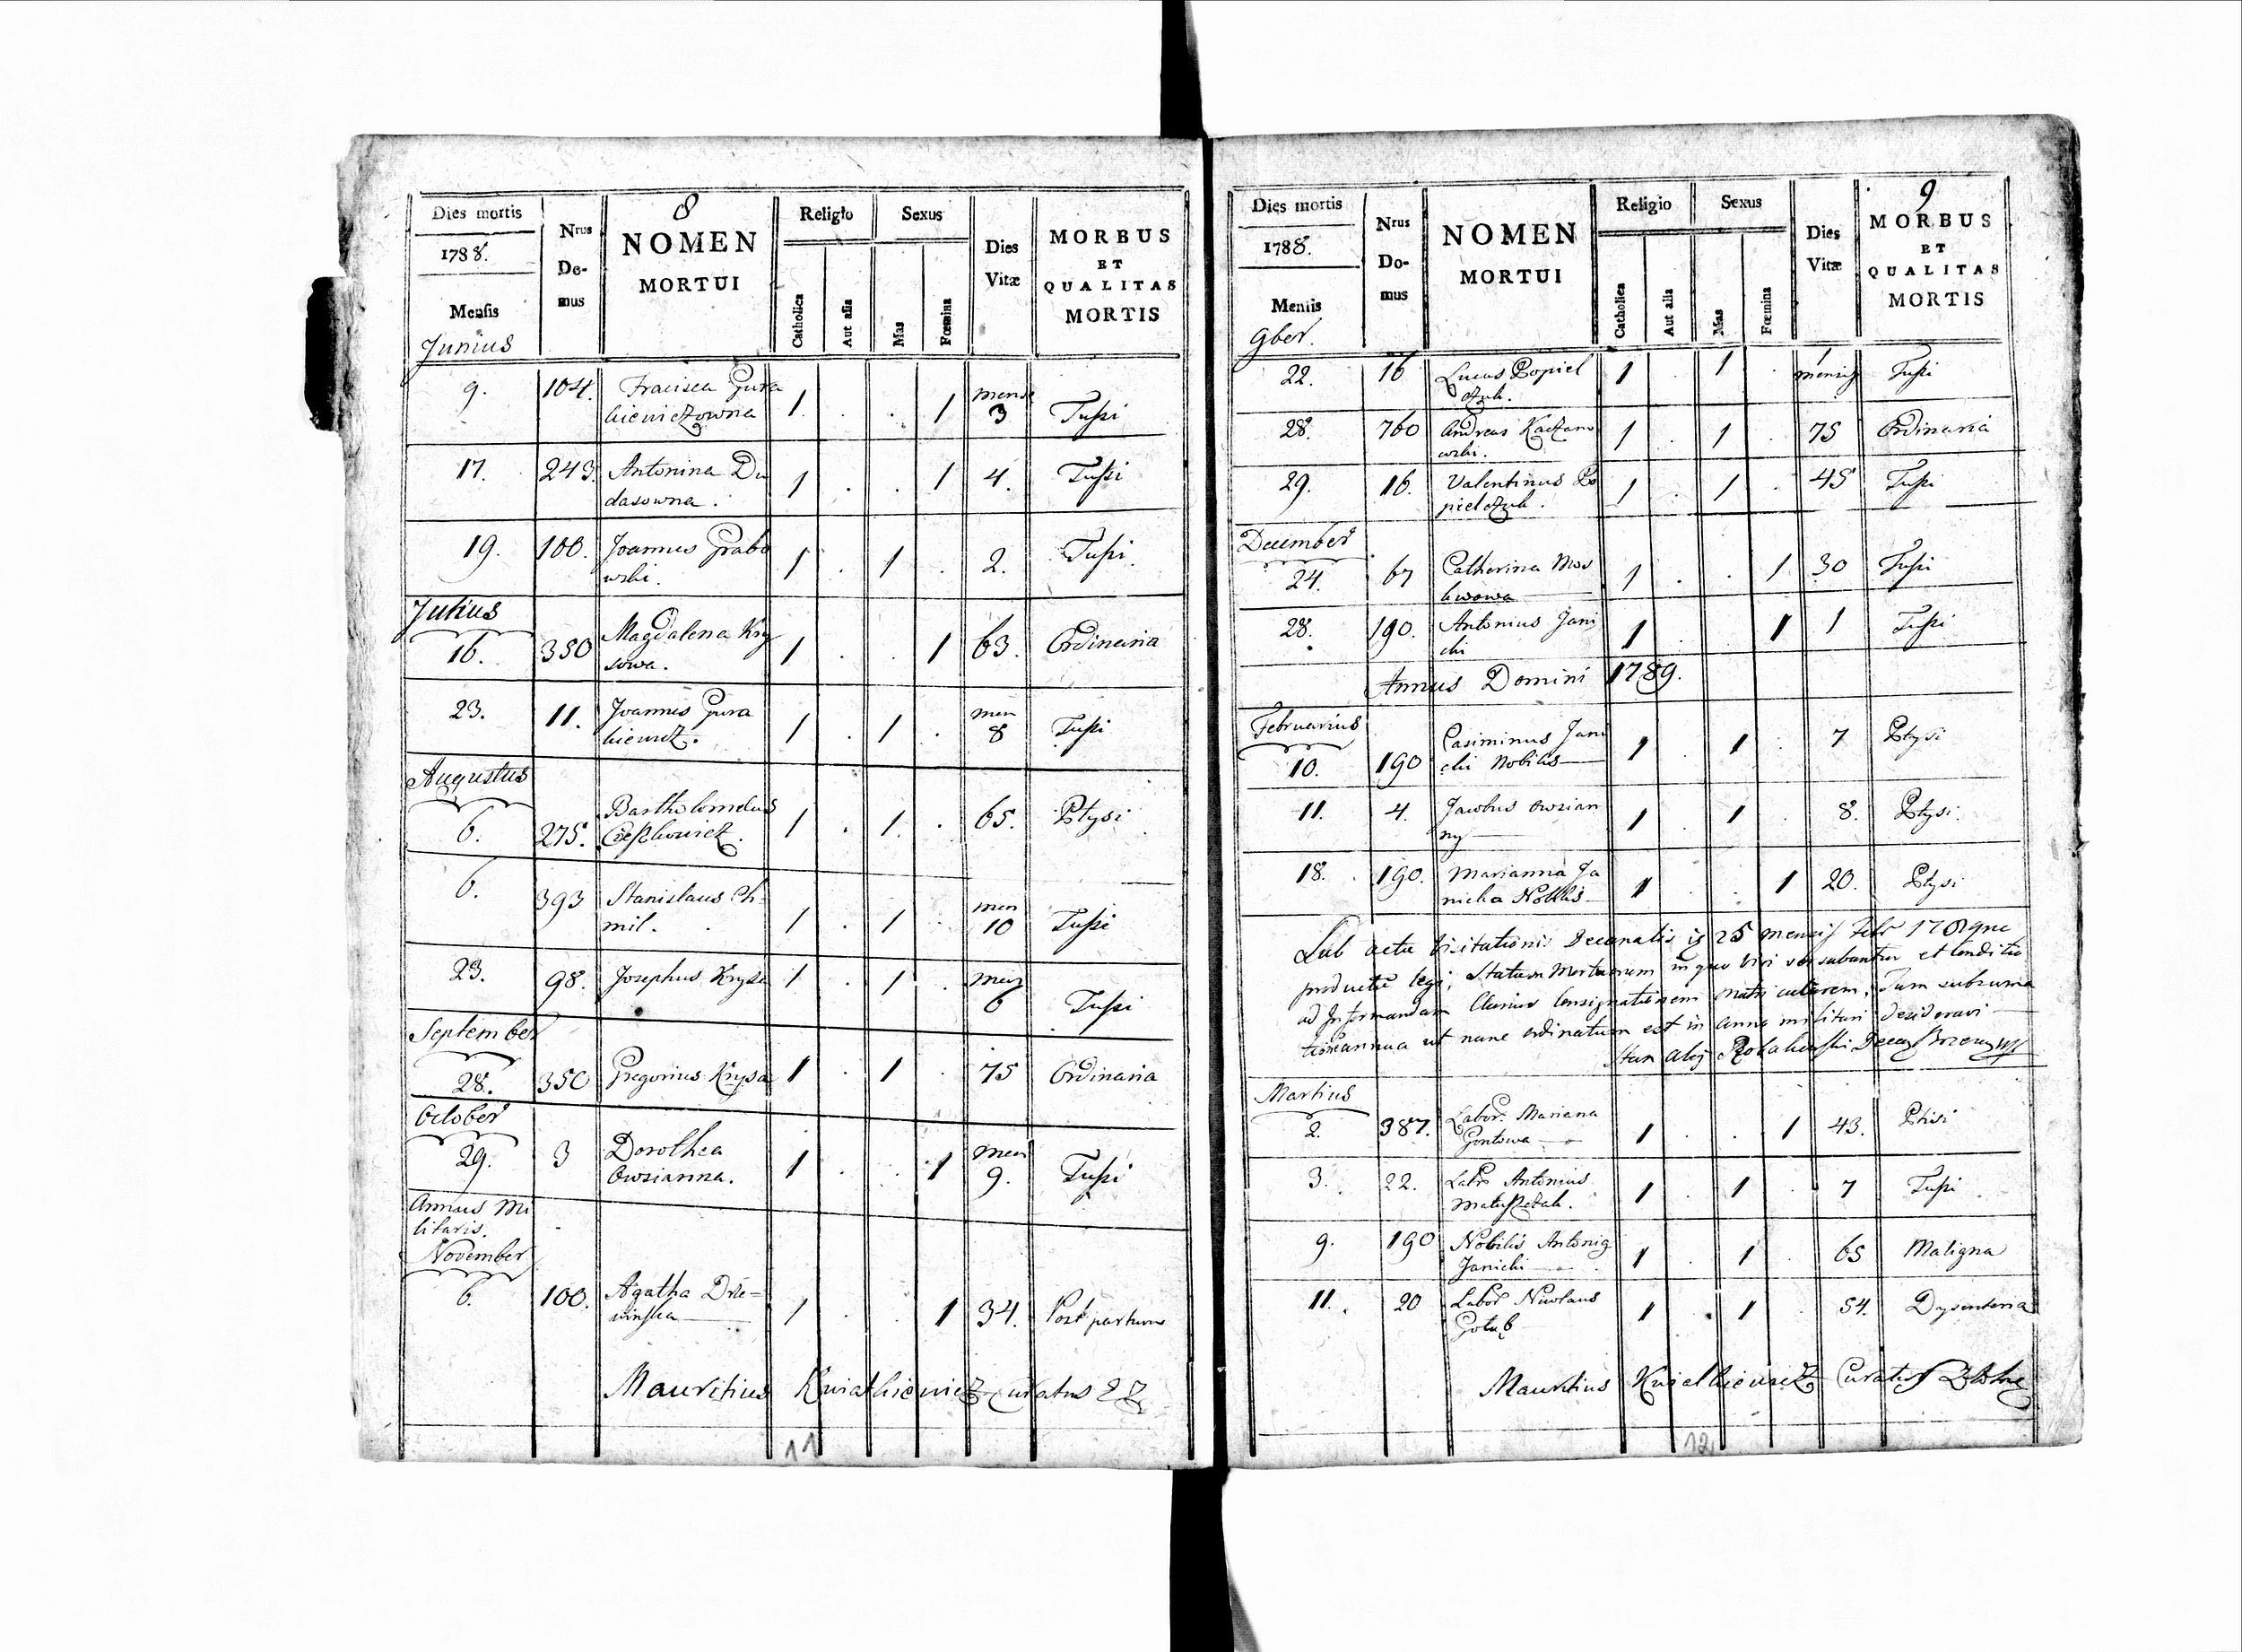 8
Dies mortis
1788.
Mensis
Junius
Nrus
Do-
mus
NOMEN
MORTUI
Religio
Catholica
Aut alia
Sexus
Mas
Fœmina
Dies
Vitæ
MORBUS
ET
QUALITAS
MORTIS
9. 104. Fracisca Gura 1. . . 1 mens 3 Tussi
kiewiczowna
17. 243. Antonina Du 1 . . 1 4. Tussi
dasowna.
19. 100. Joannes Grabo 1 . 1 . 2. Tussi.
wski.
Julius
16. 350 Magdalena Kry 1 . . 1 63. Ordinaria
sowa.
23. 11. Joannes Gura 1 . 1 . men 8 Tussi
kiewicz.
Augustus
6. 275. Bartholomeus 1 . 1. . 65. Ptysi
Cieszkowicz.
6. 393 Stanislaus Ch- 1 . 1 . men 10 Tussi
mil.
23. 98. Josephus Krysa 1 . 1 . men 6 Tussi
September
28. 350 Gregorius Krysa 1 . 1 . 75 Ordinaria
October
29. 3 Dorothea 1 . . 1 men 9. Tussi
Owsianna.
Annus Mi
litaris.
November
6. 100. Agatha Drze= 1 . . 1 34. Post partum
winska
Mauritius Kwiatkiewicz Curatus
11
9
Dies mortis
1788.
Mensis
9ber.
Nrus
Do-
mus
NOMEN
MORTUI
Religio
Catholica
Aut alia
Sexus
Mas
Fœmina
Dies
Vitæ
MORBUS
ET
QUALITAS
MORTIS
22. 16 Lucas Popiel 1 . 1 . 1 mensis Tussi
czuk.
28. 760 Andreas Kaczano 1 . 1 . 75 Ordinaria
wski.
29. 16. Valentinus Po 1 . 1 . 45 Tussi
pielczuk.
December
24. 67 Catherina Mos 1 . . 1 30 Tussi
kwowa
28. 190. Antonius Jani 1 . 1 1 Tussi
cki
Annus Domini 1789.
Februarius
10. 190 Casimirus Jani 1 . 1 . 7 Ptysi
cki Nobilis
11. 4. Jacobus Owsian 1 . 1 . 8. Ptysi.
ny
18. 190. Marianna Ja 1 . . 1 20. Ptysi
nicka Nobilis
Sub actu Visitationis Decanalis 25 mensis Febr
productum legi, Statum Mortuorum in quo et
ad Informandam Consignationem
ut nunc ordinatum est in anno militari desideravi
Martius
2. 387. Labor. Mariana 1 . . 1 43. Ptisi
Gontowa
3. 22. Labr Antonius 1 . 1 . 7 Tussi
Matuszczak.
9. 190 Nobilis Antonig 1 . 1 . 65 Maligna
Janicki
11. 20 Labor Nicolaus 1 . 1 . 54. Dysenteria
Gołąb
Mauritius Kwiatkiewicz Curatus
12